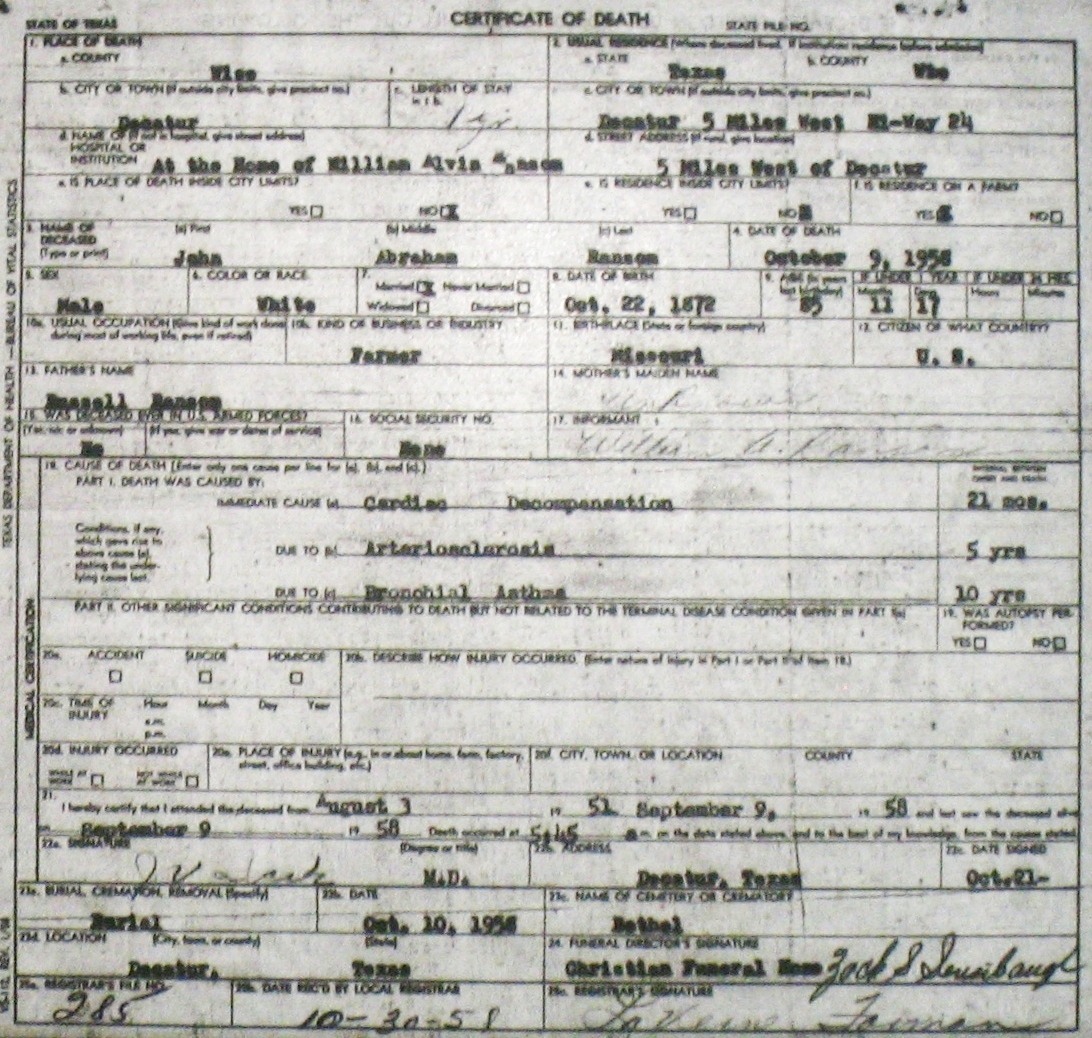 STATE OF TEXAS
CERTIFICATE OF DEATH
STATE FILE NO.
TEXAS DEPARTMENT OF HEALTH — BUREAU OF VITAL STATISTICS
1. PLACE OF DEATH
a. COUNTY
Wise
2. USUAL RESIDENCE (Where deceased lived. If institution: residence before admission)
a. STATE
Texas
b. COUNTY
b. CITY OR TOWN (If outside city limits, give precinct no.)
Decatur
c. LENGTH OF STAY
in 1 b.
c. CITY OR TOWN (If outside city limits, give precinct no.)
Decatur 5 Miles West Hi-Way 24
d. NAME OF (If not in hospital, give street address)
HOSPITAL OR
INSTITUTION At the Home of William Alvin
d. STREET ADDRESS (If rural, give location)
5 Miles West of Decatur
e. IS PLACE OF DEATH INSIDE CITY LIMITS?
YES NO X
e. IS RESIDENCE INSIDE CITY LIMITS?
YES NO X
f. IS RESIDENCE ON A FARM?
YES X NO
3. NAME OF
DECEASED
(Type or print)
(a) First
John
(b) Middle
Abraham
(c) Last
Ransom
4. DATE OF DEATH
October 9, 1958
5. SEX
Male
6. COLOR OR RACE
White
7.
Married X Never Married
Widowed Divorced
8. DATE OF BIRTH
Oct. 22, 1872
9. AGE (In years
last birthday)
85
IF UNDER 1 YEAR
Months Days
11 17
IF UNDER 24 HRS.
Hours Minutes
10a. USUAL OCCUPATION (Give kind of work done
during most of working life, even if retired)
10b. KIND OF BUSINESS OR INDUSTRY
Farmer
11. BIRTHPLACE (State or foreign country)
Missouri
12. CITIZEN OF WHAT COUNTRY?
U. S.
13. FATHER'S NAME
Russell Ransom
14. MOTHER'S MAIDEN NAME
15. WAS DECEASED EVER IN U.S. ARMED FORCES?
(Yes, no, or unknown) (If yes, give war or dates of service)
No
16. SOCIAL SECURITY NO.
None
17. INFORMANT
William A. Ransom
MEDICAL CERTIFICATION
18. CAUSE OF DEATH [Enter only one cause per line for (a), (b), and (c).]
PART I. DEATH WAS CAUSED BY:
INTERVAL BETWEEN
ONSET AND DEATH
IMMEDIATE CAUSE (a) Cardiac Decompensation
21 mos.
Conditions, if any,
which gave rise to
above cause (a),
stating the under-
lying cause last.
DUE TO (b) Arteriosclerosis
5 yrs
DUE TO (c) Bronchial Asthma
10 yrs
PART II. OTHER SIGNIFICANT CONDITIONS CONTRIBUTING TO DEATH BUT NOT RELATED TO THE TERMINAL DISEASE CONDITION GIVEN IN PART I(a)
19. WAS AUTOPSY PER-
FORMED?
YES NO
20a. ACCIDENT SUICIDE HOMICIDE
20b. DESCRIBE HOW INJURY OCCURRED. (Enter nature of injury in Part I or Part II of item 18.)
20c. TIME OF
INJURY
Hour Month Day Year
a.m.
p.m.
20d. INJURY OCCURRED
WHILE AT
WORK
NOT WHILE
AT WORK
20e. PLACE OF INJURY (e.g., in or about home, farm, factory,
street, office building, etc.)
20f. CITY, TOWN, OR LOCATION COUNTY STATE
21.
I hereby certify that I attended the deceased from August 3 19 51 September 9, 19 58 and last saw the deceased alive
on September 9 19 58 Death occurred at 5:45 a m. on the date stated above, and to the best of my knowledge, from the causes stated.
22a. SIGNATURE
(Degree or title)
M.D.
22b. ADDRESS
Decatur, Texas
22c. DATE SIGNED
Oct.21-
23a. BURIAL, CREMATION, REMOVAL (Specify)
Burial
23b. DATE
Oct. 10, 1958
23c. NAME OF CEMETERY OR CREMATORY
Bethel
23d. LOCATION (City, town, or county) (State)
Decatur, Texas
24. FUNERAL DIRECTOR'S SIGNATURE
Christian Funeral Home
25a. REGISTRAR'S FILE NO.
285
25b. DATE REC'D BY LOCAL REGISTRAR
10-30-58
25c. REGISTRAR'S SIGNATURE